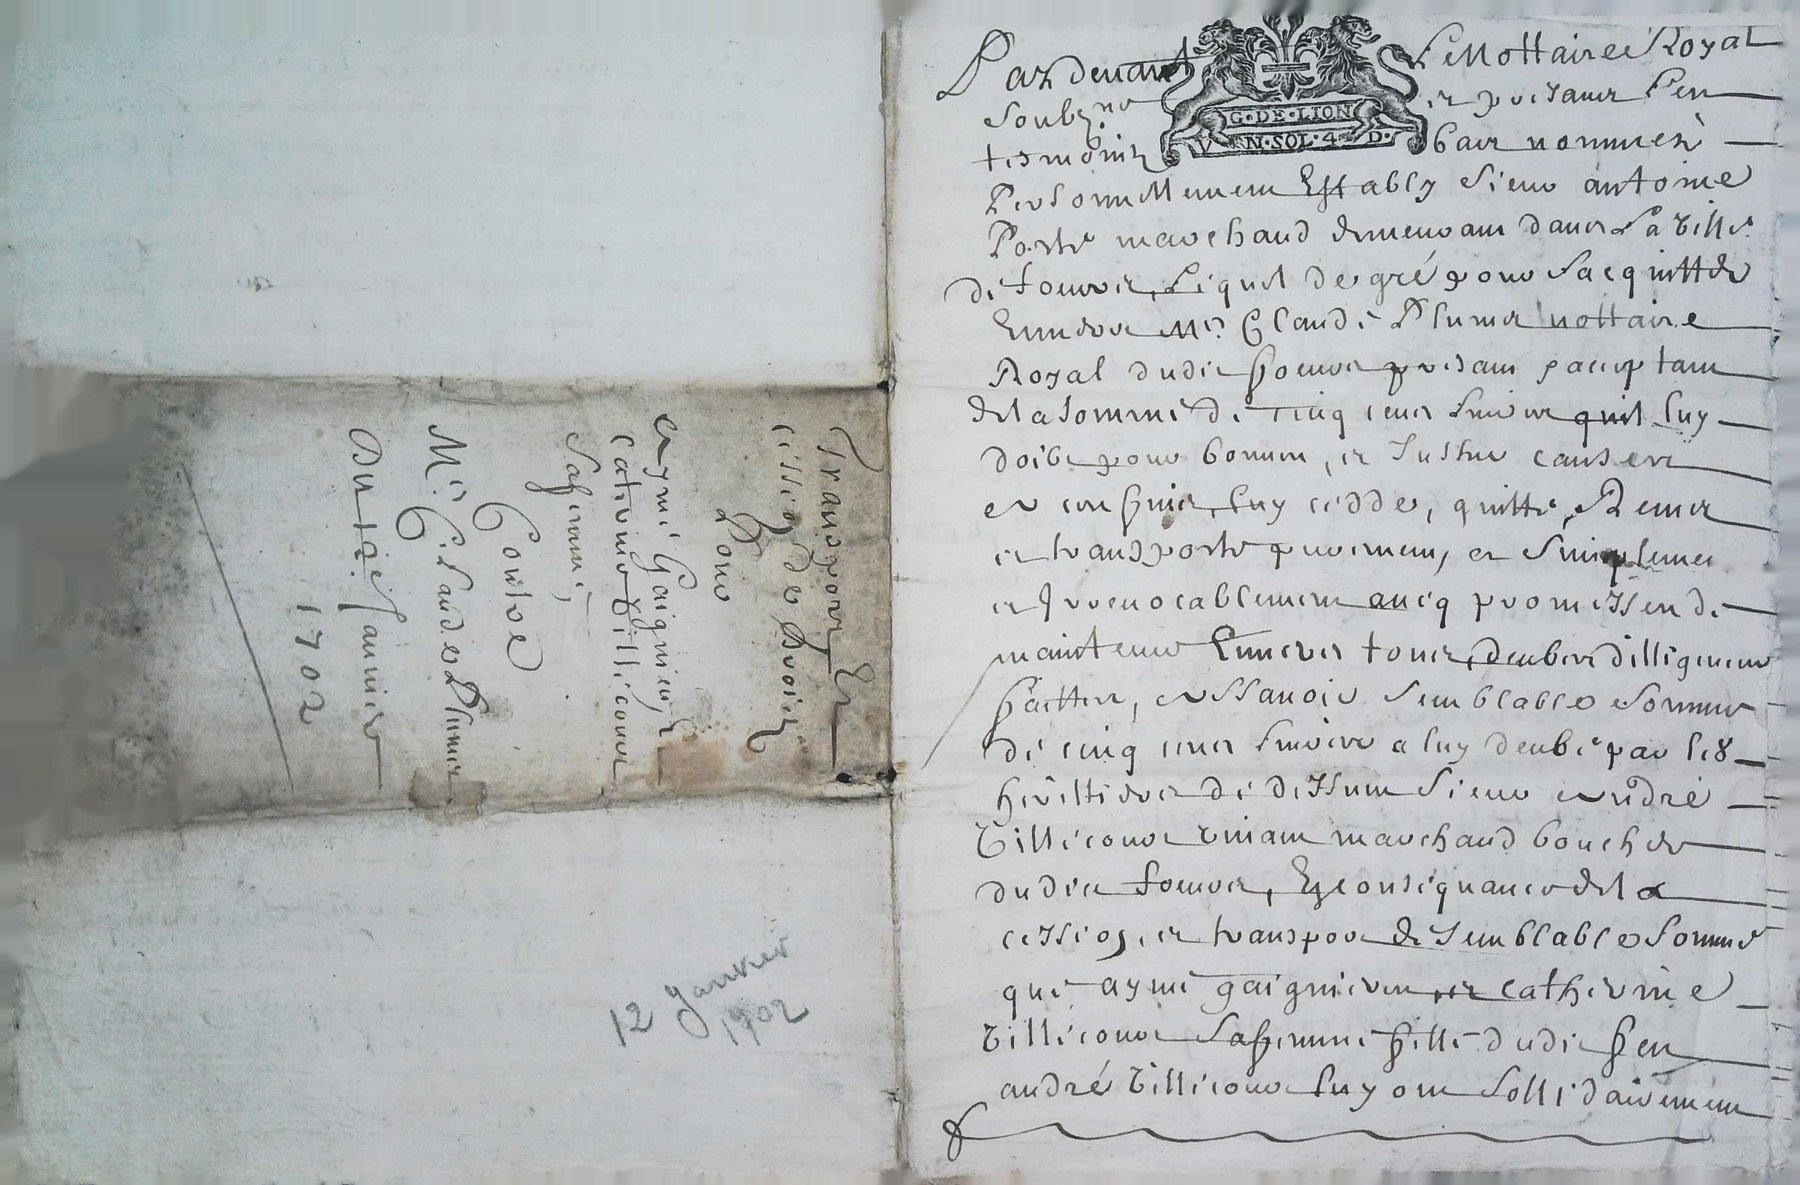 Transport Et
cession de droictz
Pour
aymé Gaignieu, &
caterine Villecour
sa femme,
Contre
Mre. Claude Plumer
Du 12e. Janvier
1702
12 Janvier
1702
Par devant Le Nottaire Royal
Soubz.né et presans Les
tesmoins bas nommés
G·DE·LION
VN·SOL·4·D·
Personnellement Estably Sieur antoine
Porte marchand demeurant dans La Ville
de feurs, Lequel de gré pour sacquitter
Envers Mre. Claude Plumer nottaire
Royal dudit feurs presant & acceptant
de la somme de cinq cens livres quil luy
doibt pour bonnes, et Justes causes
luy cedde, quitte, Remet
et transporte purement, et simplement
et Irrevocablement avecq promesses de
maintenir Envers tous, deubes dilligences
faittes, assavoir semblable somme
de cinq cens livres a luy deube par les
herittiers de deffunt Sieur andré
Villecour vivant marchand boucher
dudit feurs, En consequance de la
cession, et transport de semblable somme
que aymé gaignieu et catherine
Villecour sa femme fille dudit feu
andré Villecour luy ont sollidairement